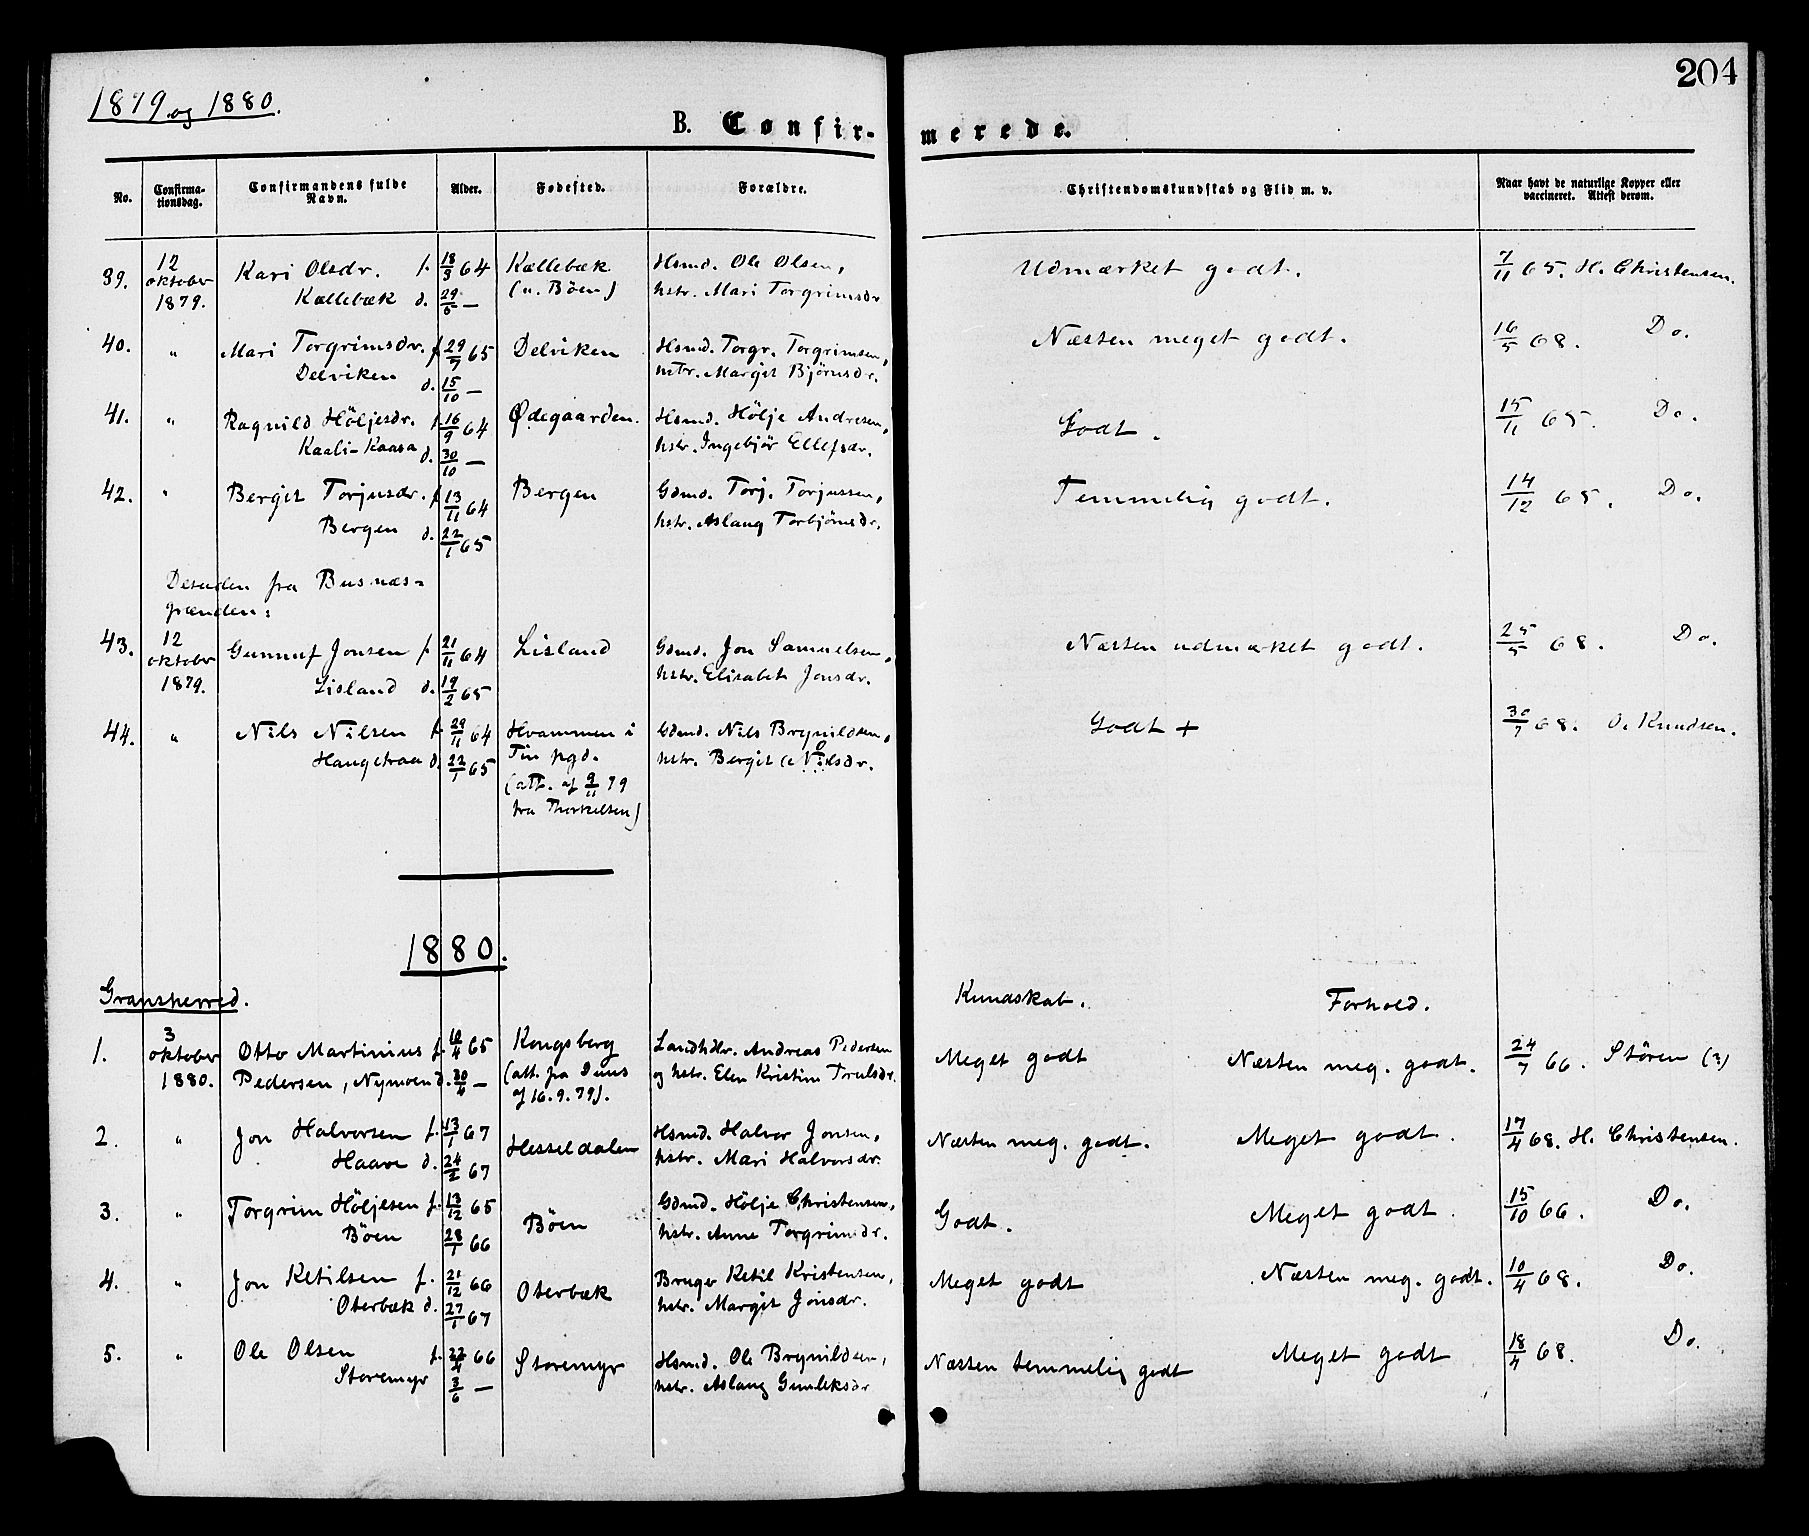 1879 og 1880.
204
B. Confirmerede.
No. Confirmationsdag. Confirmandens fulde Navn. Alder. Fødested. Forældre. Christendomskundskab og Flid m. v. Naar havt de naturlige Kopper eller vaccineret. Attest derom.
39. 12 oktober 1879. Kari Olsdr. Kællebæk f. 18/3 64 d. 29/5 — Kællebæk (u. Bøen) Hsmd. Ole Olsen, hstr. Mari Torgrimsdr Udmærket godt. 7/11 65. H. Christensen.
40. " Mari Torgrimsdr. Delviken f. 29/7 65 d. 15/10 — Delviken Hsmd. Torgr. Torgrimsen, hstr. Margit Bjørnsdr. Næsten meget godt. 16/5 68. Do.
41. " Ragnild Höljesdr. Kaali-Kaasa f. 16/9 64 d. 30/10 — Ødegaarden. Hsmd. Hölje Andresen, hstr. Ingebjör Ellefsdr. Godt. 15/11 65. Do.
42. " Bergit Torjusdr. Bergen f. 13/11 64 d. 22/1 65 Bergen Gdmd. Torj. Torjussen, hstr. Aslaug Torbjörnsdr. Temmelig godt. 14/12 65. Do.
Desuden fra Busnæs-
grænden:
43. 12 oktober 1879. Gunnuf Jonsen Lisland f. 21/11 64 d. 19/2 65 Lisland Gdmd. Jon Samuelsen, hstr. Elisabet Jonsdr. Næsten udmærket godt. 25/5 68. Do.
44. " Nils Nilsen Haugetraa f. 29/11 64 d. 22/1 65 Hvammen i Tin pgd. (att. af 9/11 79 fra Thorkelsen) Gdmd. Nils Brynildsen, hstr. Bergit Olsdr. Godt + 30/7 68. O. Knudsen.
1880.
Gransherred.
Kundskab. Forhold.
1. 3 oktober 1880. Otto Martinius Pedersen, Nymoen f. 10/4 65 d. 30/4 — Kongsberg (att. fra Duus af 16.9.79). Landhdlr. Andreas Pedersen og hstr. Elen Kristine Trulsdr. Meget godt Næsten meg. godt. 24/7 66. Stören (?)
2. " Jon Halvorsen Haave f. 13/1 67 d. 24/2 67 Hesseldalen Hsmd. Halvor Jonsen, hstr. Mari Halvorsdr. Næsten meg. godt. Meget godt. 17/4 68. H. Christensen.
3. " Torgrim Höljesen Böen f. 13/12 65 d. 28/1 66 Böen Gdmd. Hölje Christensen, hstr. Anne Torgrimsdr. Godt. Meget godt. 15/10 66. Do.
4. " Jon Ketilsen Oterbæk f. 21/12 66 d. 27/1 67 Oterbæk Bruger Ketil Kristensen, hstr. Margit Jonsdr. Meget godt Næsten meg. godt. 10/4 68. Do.
5. " Ole Olsen Storemyr f. 22/4 66 3/6 — Storemyr Hsmd. Ole Brynildsen, hstr. Aslaug Gunleksdr Næsten temmelig godt Meget godt 18/4 68. Do.